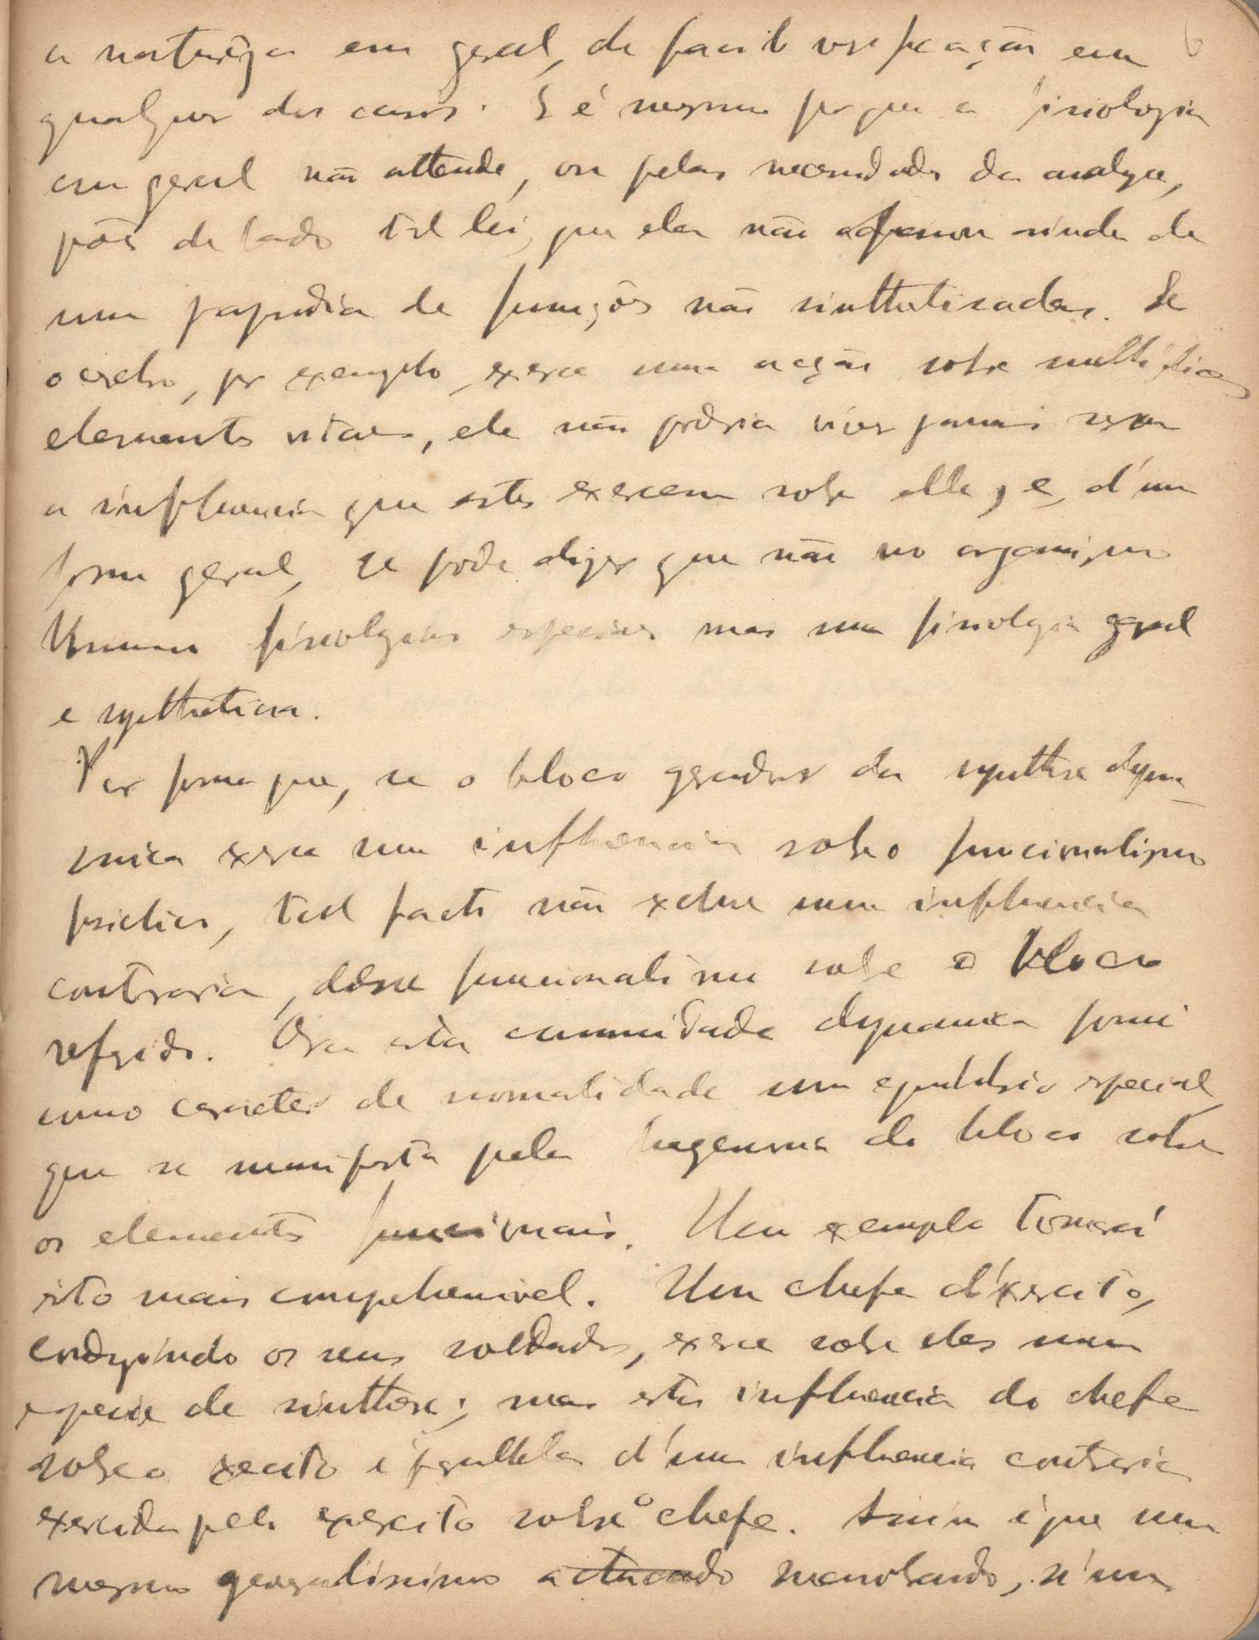 a natureza em geral, de facil verificação em
qualquer dos casos. E é mesmo porque a fisiologia
em geral não attende, ou pelas necessidades da analyse,
põe de lado tal lei, que ela não passou ainda de
uma de funções não sinthetisadas. Se
o cerebro, por exemplo, exerce uma acção sobre multiplices
elementos vitaes, ele não poderia viver jamais sem
a influencia que estes exercem sobre elle, e, d'uma
forma geral, se pode dizer que não no organismo
humano fisiologias especiaes mas uma fisiologia geral
e synthetica.
Por forma que, se o bloco gerador da synthese dyna-
mica exerce uma influencia sobre o funcionalismo
psichico, tal facto não exclue uma influencia
contraria, desse funcionalismo sobre o bloco
referido. Ora esta dynamica
como caracter de normalidade um equilibrio especial
que se manifesta pela hegemonia do bloco sobre
os elementos funcionais. Um exemplo tornará
isto mais comprehensivel. Um chefe d'exercito,
conduzindo os seus soldados, exerce sobre eles uma
especie de sinthese; mas esta influencia do chefe
sobre o exercito é parallela d'uma influencia contraria
exercida pelo exercito sobre o chefe. Assim é que um
mesmo generalissimo actuando manobrando, n'um